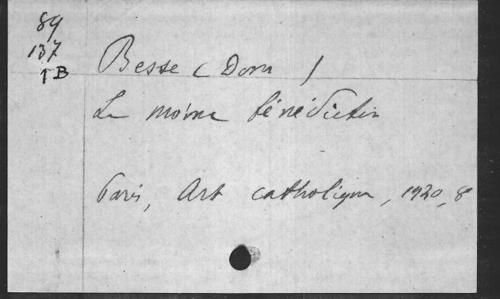 89
137
TB
Besse (Dom)
Le moine bénédictin
Paris, Art catholique, 1920, 8